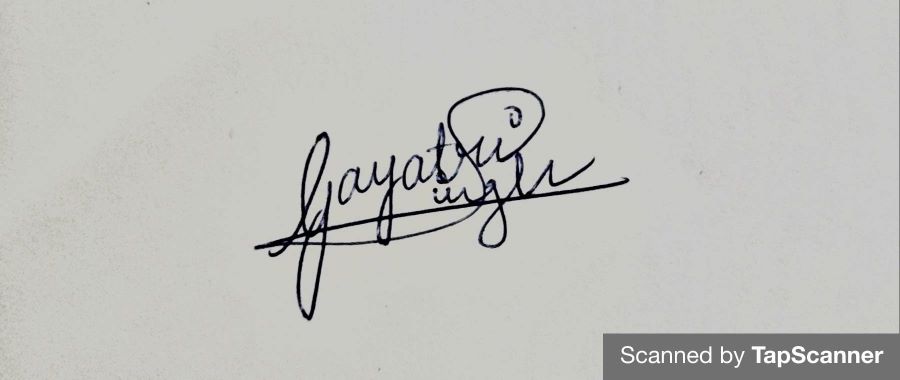 Gayatri
Singh
Scanned by TapScanner